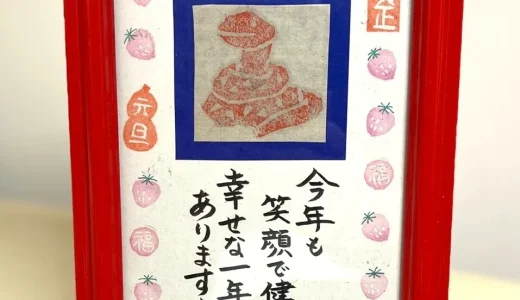 今年も
笑顔で健
幸せな一年
あります
元旦
福
福
福